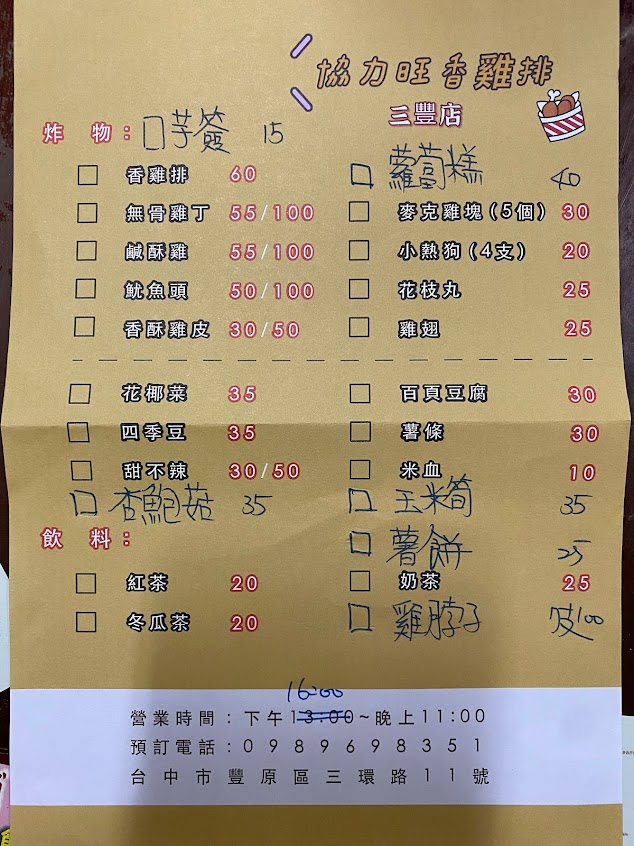 協力旺香雞排
三豐店
炸 物： 芋簽 15
香雞排 60
蘿蔔糕 40
無骨雞丁 55/100
麥克雞塊(5個) 30
鹹酥雞 55/100
小熱狗(4支) 20
魷魚頭 50/100
花枝丸 25
香酥雞皮 30/50
雞翅 25
花椰菜 35
百頁豆腐 30
四季豆 35
薯條 30
甜不辣 30/50
米血 10
杏鮑菇 35
玉米筍 35
飲 料：
薯餅 25
紅茶 20
奶茶 25
冬瓜茶 20
雞脖子 100
16:00
營業時間：下午13:00~晚上11:00
預訂電話：0989698351
台中市豐原區三環路11號